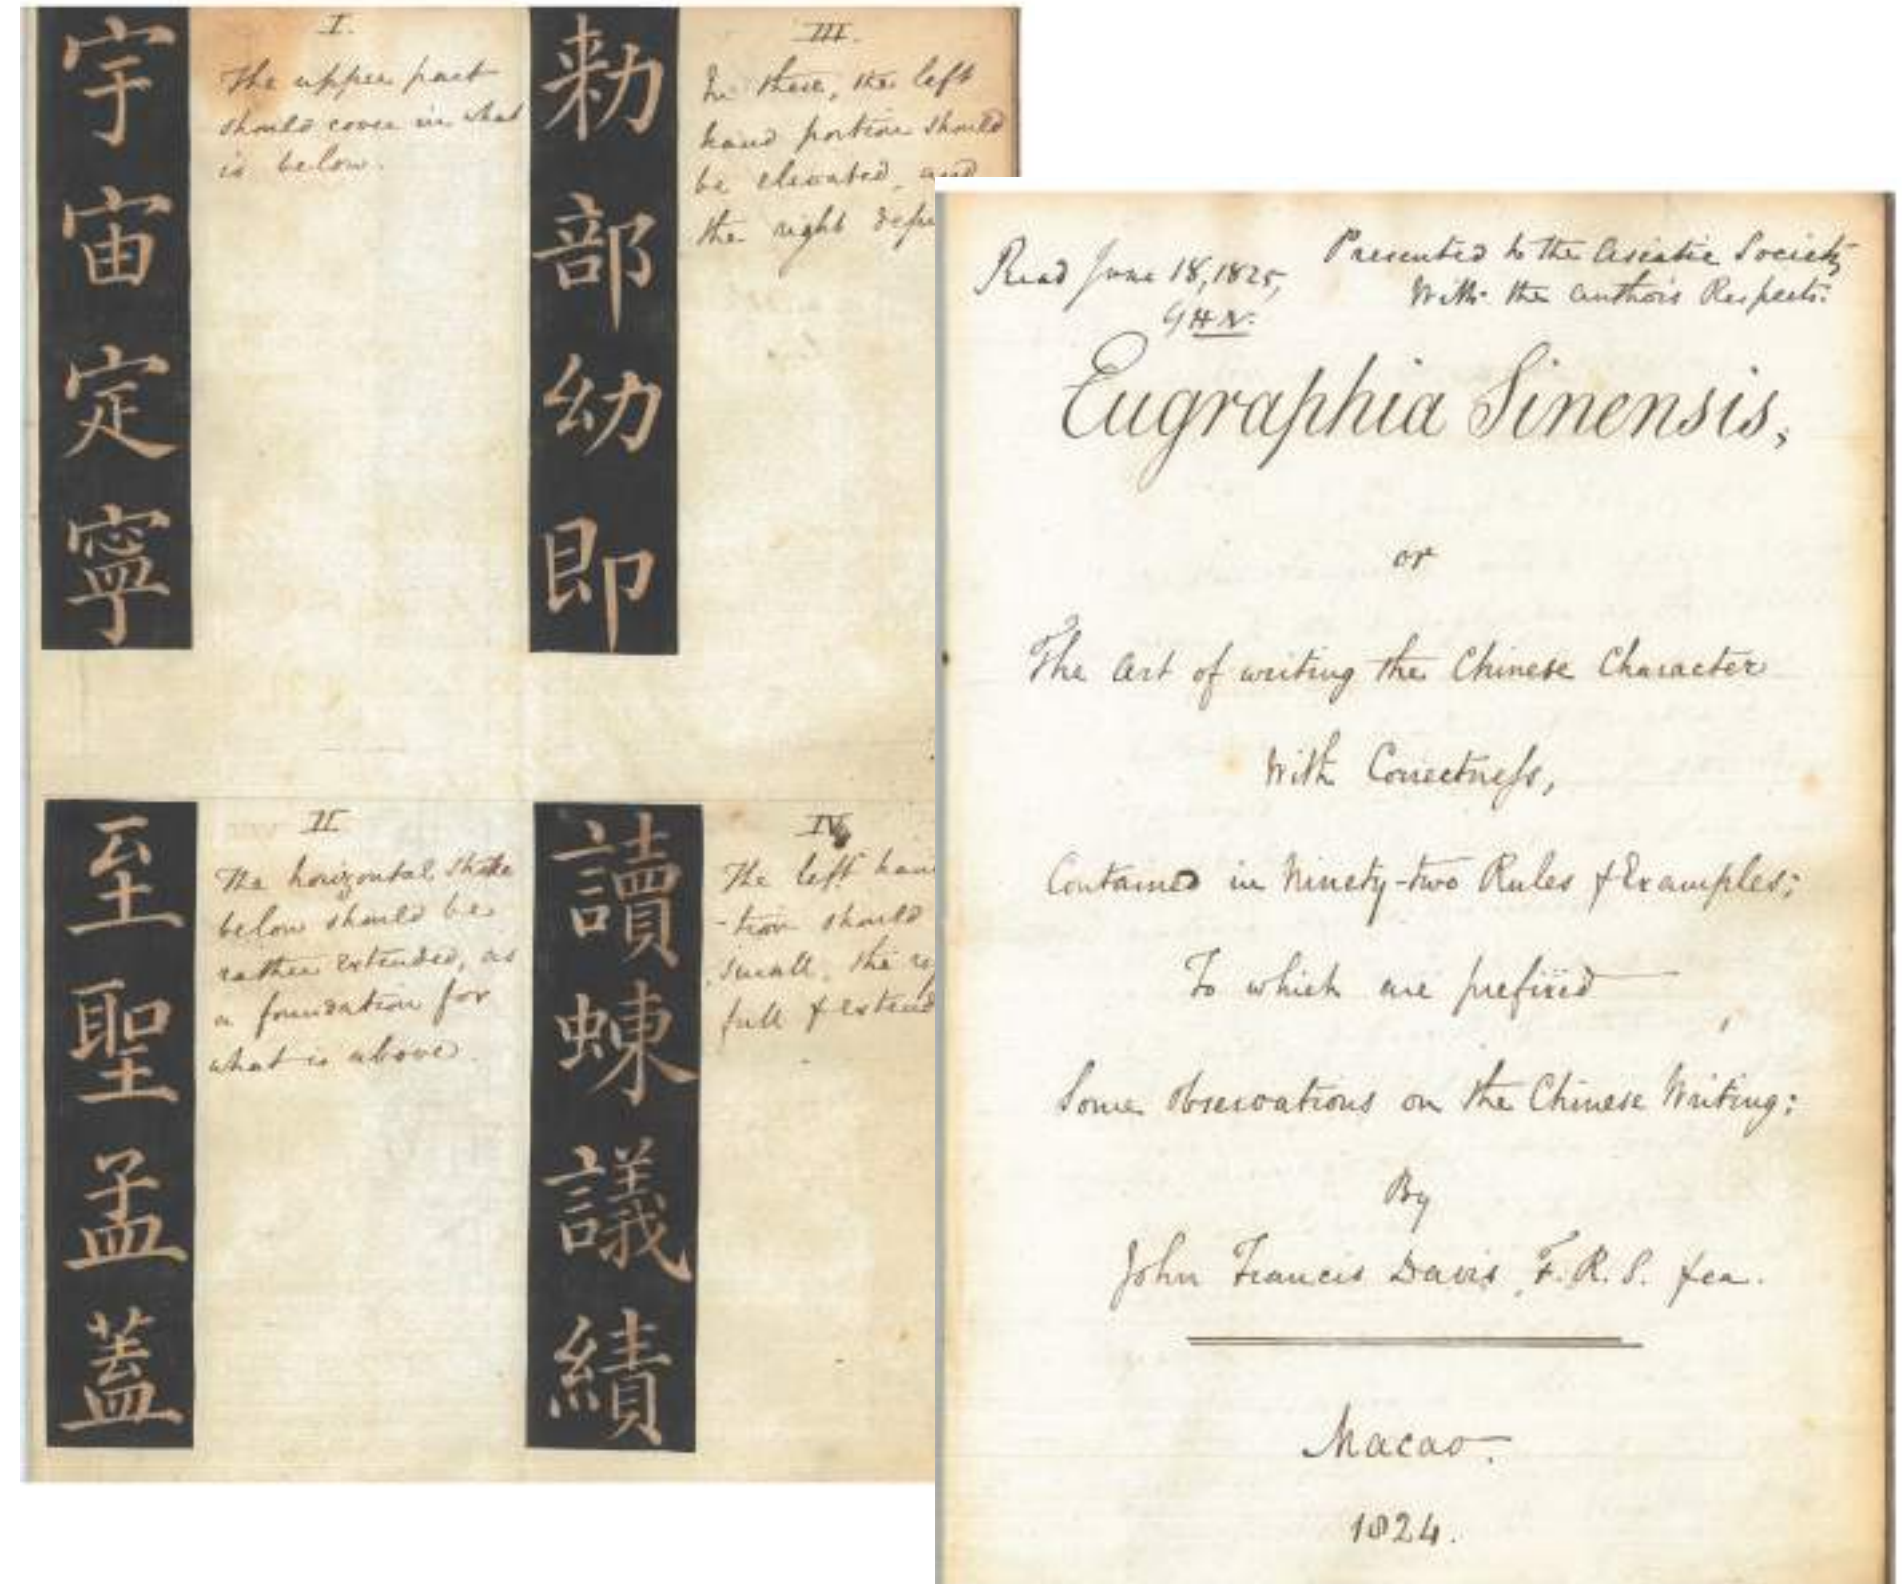 I.
宇
宙
定
寧
The upper part
should cover in what
is below.
III.
勑
部
幼
即
In these, the left
hand portion should
be elevated, and
the right
II
至
聖
孟
蓋
The horizontal stroke
below should be
rather extended, as
a foundation for
what is above.
IV
讀
蝀
議
績
The left han
-tion should
small, the
full & extend
Read June 18, 1825,
GHN.
Presented to the Asiatic Society
With the authors Respects.
Eugraphia Sinensis,
or
The Art of writing the Chinese Character
With Correctneſs,
Contained in Ninety-two Rules & Examples;
To which are prefixed
Some observations on the Chinese Writing:
By
John Francis Davis, F.R.S. &ca.
Macao.
1824.